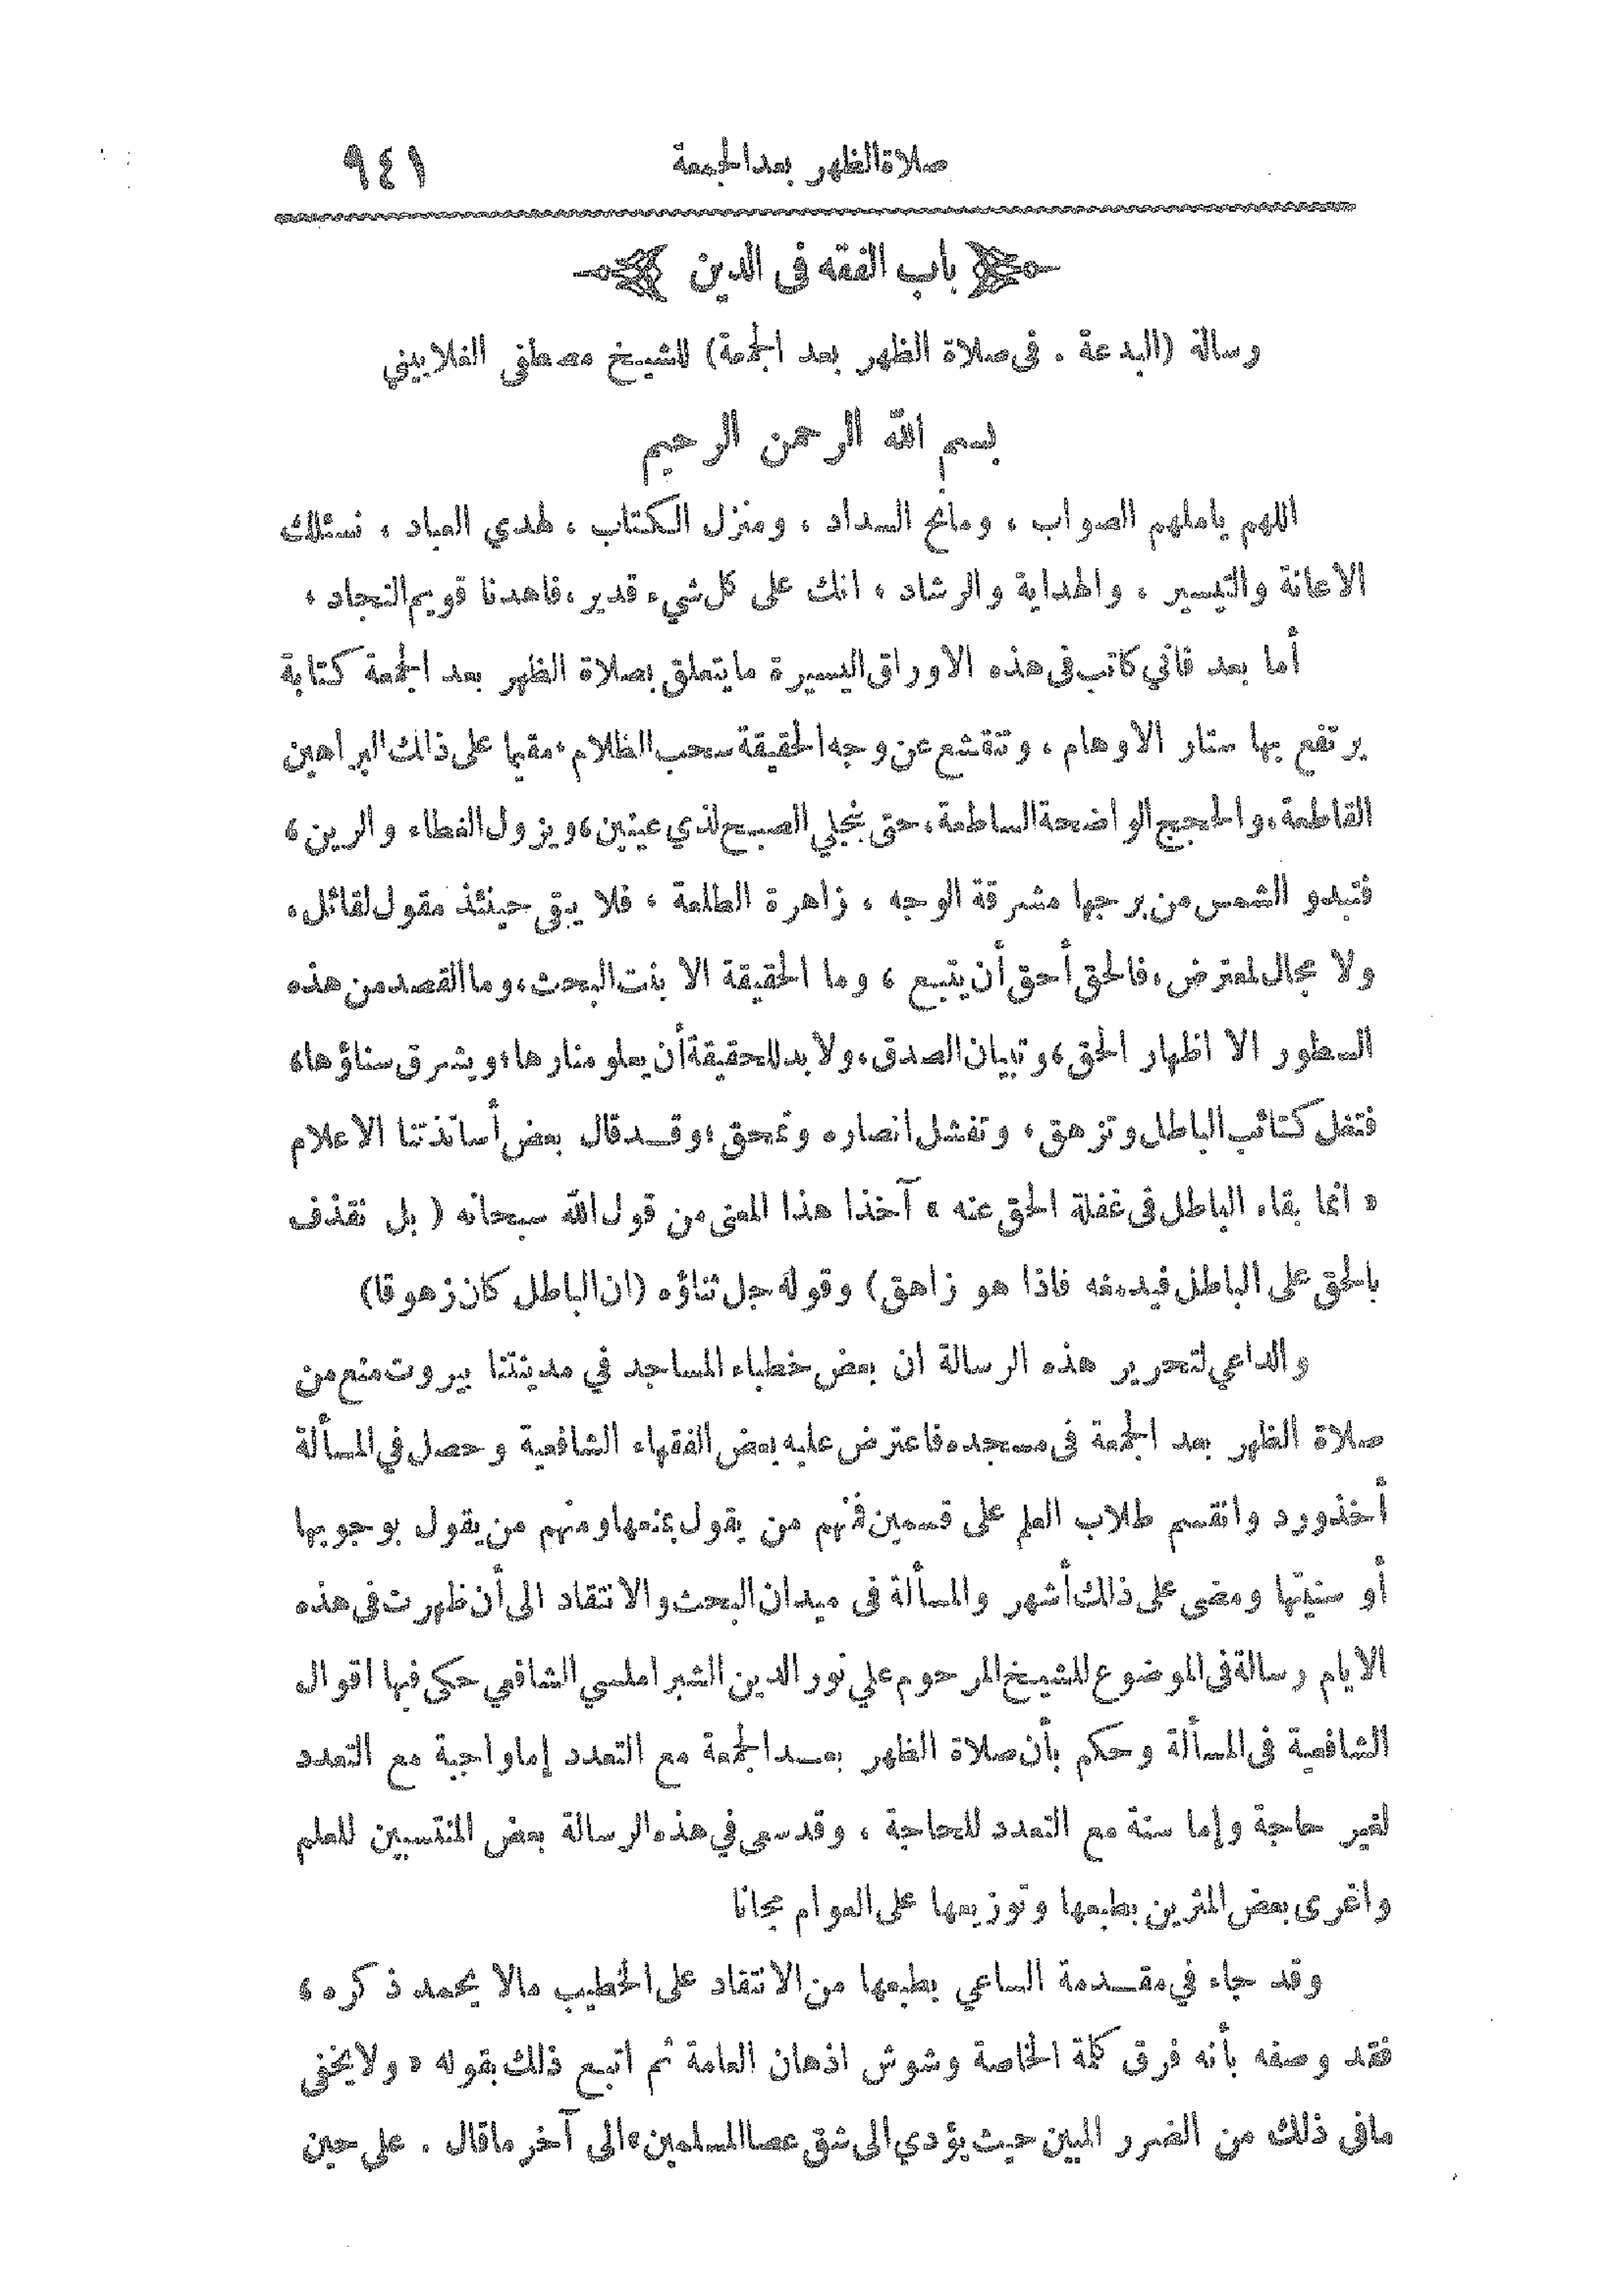 صلاة الظهر بعد الجمعة ٩٤١
باب الفقه فى الدين
رسالة (البدعة . فى صلاة الظهر بعد الجمعة) للشيخ مصطفى الغلاييني
بسم الله الرحمن الرحيم
اللهم ياملهم الصواب ، ومانح السداد ، ومنزل الكتاب ، لهدي العباد ، نسئلك
الاعانة والتيسير ، والهداية والرشاد ، انك على كل شيء قدير ، فاهدنا قويم النجاد ،
أما بعد فاني كاتب فى هذه الاوراق اليسيرة ما يتعلق بصلاة الظهر بعد الجمعة كتابة
يرتفع بها ستار الاوهام ، وتنقشع عن وجه الحقيقة سحب الظلام ، مقيما على ذلك البراهين
القاطعة ، والحجج الواضحة الساطعة ، حتى ينجلي الصبح لذي عينين ، ويزول الغطاء والرين ،
فتبدو الشمس من برجها مشرقة الوجه ، زاهرة الطلعة ، فلا يبقى حينئذ مقول لقائل ،
ولا مجال لمعترض ، فالحق أحق أن يتبع ، وما الحقيقة الا بنت البحث ، وما القصد من هذه
السطور الا اظهار الحق ، وتبيان الصدق ، ولا بد للحقيقة أن يعلو منارها ، ويشرق سناؤها ،
فتفل كتائب الباطل وتزهق ، وتفشل أنصاره وتمحق ، وقد قال بعض أساتذتنا الاعلام
« انما بقاء الباطل فى غفلة الحق عنه » آخذا هذا المعنى من قول الله سبحانه ( بل نقذف
بالحق على الباطل فيدمغه فاذا هو زاهق) وقوله جل ثناؤه (ان الباطل كان زهوقا)
والداعي لتحرير هذه الرسالة ان بعض خطباء المساجد في مدينتنا بيروت منع من
صلاة الظهر بعد الجمعة فى مسجده فاعترض عليه بعض الفقهاء الشافعية وحصل في المسألة
أخذ ورد وانقسم طلاب العلم على قسمين فمنهم من يقول بمنعها ومنهم من يقول بوجوبها
أو سنيتها ومضى على ذلك أشهر والمسألة فى ميدان البحث والانتقاد الى أن ظهرت فى هذه
الايام رسالة فى الموضوع للشيخ المرحوم علي نور الدين الشبراملسي الشافعي حكى فيها اقوال
الشافعية فى المسألة وحكم بأن صلاة الظهر بعد الجمعة مع التعدد إما واجبة مع التعدد
لغير حاجة وإما سنة مع التعدد للحاجة ، وقد سعى في هذه الرسالة بعض المنتسبين للعلم
واغرى بعض المثرين بطبعها وتوزيعها على العوام مجانا
وقد جاء في مقدمة الساعي بطبعها من الانتقاد على الخطيب مالا يحمد ذكره ،
فقد وصفه بأنه فرق كلمة الخاصة وشوش اذهان العامة ثم اتبع ذلك بقوله « ولا يخفى
مافى ذلك من الضرر المبين حيث يؤدي الى شق عصا المسلمين » الى آخر ما قال . على حين